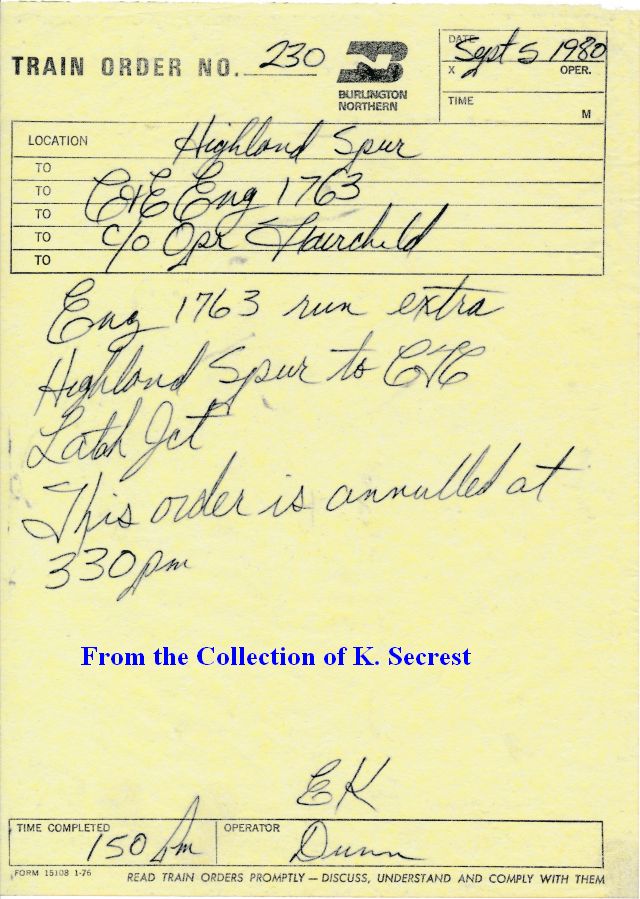 TRAIN ORDER NO. 230
BURLINGTON
NORTHERN
DATE
Sept 5 1980
X OPER.
TIME
M
LOCATION Highland Spur
TO
TO C&E Eng 1763
TO
TO c/o Opr Fairchild
TO
Eng 1763 run extra
Highland Spur to CTC
Latah Jct
This order is annulled at
330pm
From the Collection of K. Secrest
EK
TIME COMPLETED
150 pm
OPERATOR
Dunn
FORM 15108 1-76
READ TRAIN ORDERS PROMPTLY — DISCUSS, UNDERSTAND AND COMPLY WITH THEM